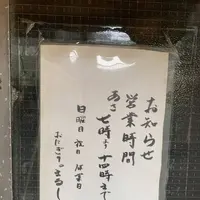 お知らせ
営業時間
あさ
七時より十四時まで
日曜日 祝日 休業日
おにぎりのまるし